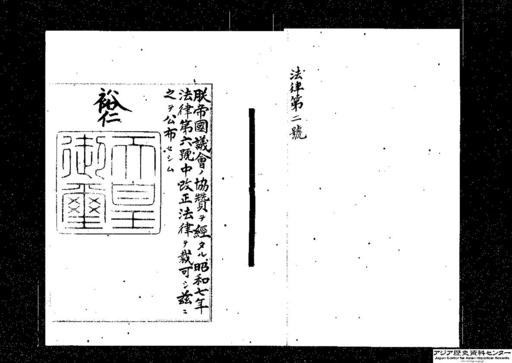 法律第二號
朕帝國議會ノ協贊ヲ經タル昭和七年
法律第六號中改正法律ヲ裁可シ茲ニ
之ヲ公布セシム
裕仁
天皇
御璽
アジア歴史資料センター
Japan Center for Asian Historical Records